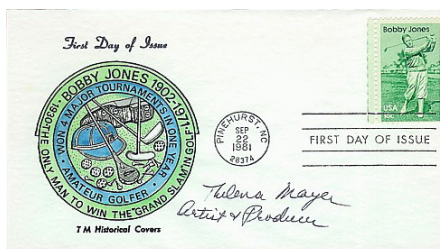 First Day of Issue
BOBBY JONES 1902-1971
1930-THE ONLY MAN TO WIN THE "GRAND SLAM" IN GOLF
WON 4 MAJOR TOURNAMENTS IN ONE YEAR
AMATEUR GOLFER
T M Historical Covers
PINEHURST, NC
SEP
22
1981
28374
Bobby Jones
USA
18c
FIRST DAY OF ISSUE
Thelma Mayer
Artist & Producer